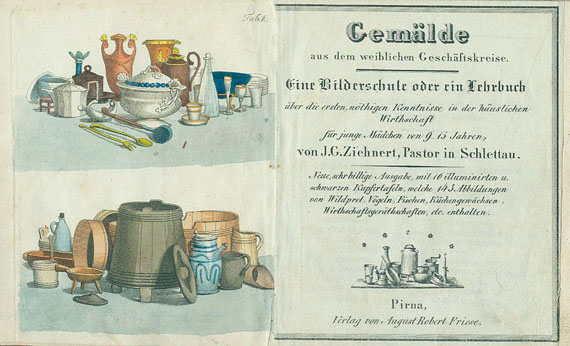 Tab. I.
Gemälde
aus dem weiblichen Geschäftskreise.
Eine Bilderschule oder ein Lehrbuch
über die ersten, nöthigen Kenntnisse in der häuslichen
Wirthschaft
für junge Mädchen von 9-15 Jahren,
von J.G. Ziehnert, Pastor in Schlettau.
Neue, sehr billige Ausgabe, mit 16 illuminirten u.
schwarzen Kupfertafeln, welche 143 Abbildungen
von Wildpret, Vögeln, Fischen, Küchengewächsen,
Wirthschaftsgeräthschaften, etc. enthalten.
Pirna,
Verlag von August Robert Friese.